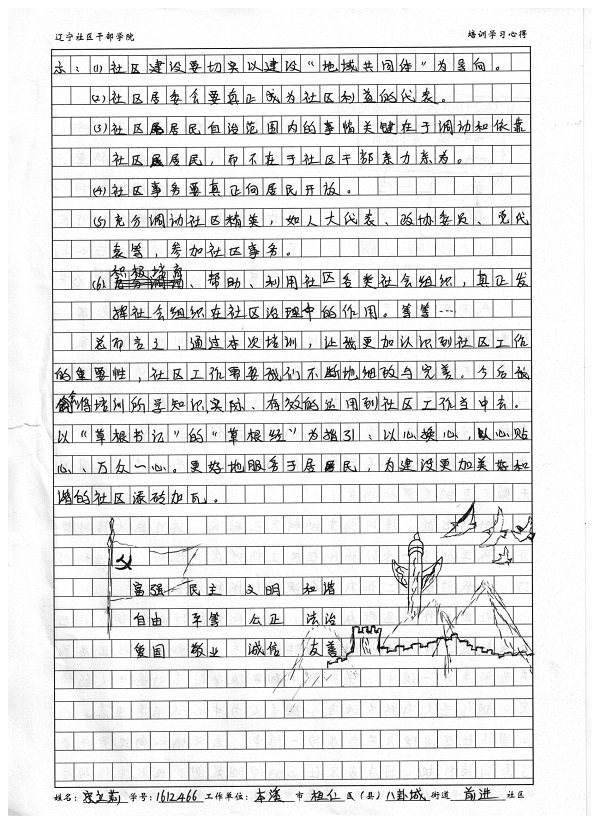 辽宁社区干部学院 培训学习心得
示：(1)社区建设要切实以建设“地域共同体”为导向。
(2)社区居委会要真正成为社区利益的代表。
(3)社区居民自治范围内的事情关键在于调动和依靠
社区居民，而不在于社区干部亲力亲为。
(4)社区事务要真正向居民开放。
(5)充分调动社区精英，如人大代表、政协委员、党代
表等，参加社区事务。
积极培育
(6)、帮助、利用社区各类社会组织，真正发
挥社会组织在社区治理中的作用。等等…
总而言之，通过本次培训，让我更加认识到社区工作
的重要性，社区工作需要我们不断地细改与完善。今后我
会将培训所学知识，实际、有效的运用到社区工作当中去。
以“草根书记”的“草根经”为指引、以心换心，以心贴
心、万众一心。更好地服务于居民，为建设更加美好和
谐的社区添砖加瓦。
富强 民主 文明 和谐
自由 平等 公正 法治
爱国 敬业 诚信 友善
姓名: 学号:1612466 工作单位: 本溪 市 桓仁 区(县) 八卦城 街道 前进 社区